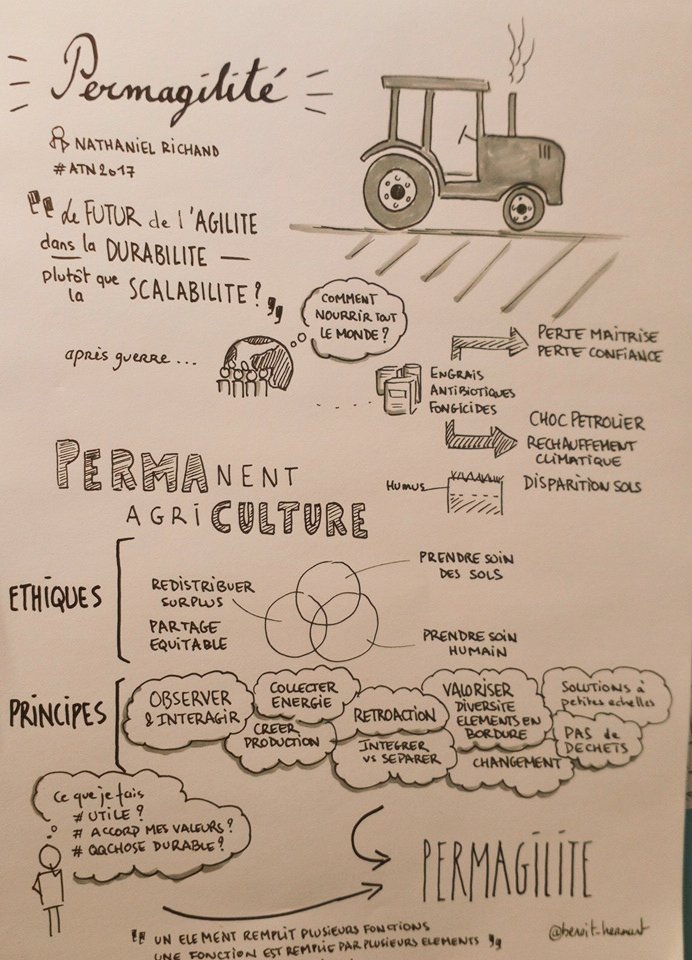 Permagilité
NATHANIEL RICHAND
#ATN2017
" Le FUTUR de l'AGILITE
dans la DURABILITE —
plutôt que
la SCALABILITE ? "
COMMENT
NOURRIR TOUT
LE MONDE ?
après guerre ...
ENGRAIS
ANTIBIOTIQUES
FONGICIDES
PERTE MAITRISE
PERTE CONFIANCE
CHOC PETROLIER
RECHAUFFEMENT
CLIMATIQUE
DISPARITION SOLS
HUMUS
PERMANENT
AGRICULTURE
ETHIQUES
REDISTRIBUER
SURPLUS
PARTAGE
EQUITABLE
PRENDRE SOIN
DES SOLS
PRENDRE SOIN
HUMAIN
PRINCIPES
OBSERVER
& INTERAGIR
COLLECTER
ENERGIE
CREER
PRODUCTION
RETROACTION
INTEGRER
vs SEPARER
VALORISER
DIVERSITE
ELEMENTS EN
BORDURE
CHANGEMENT
SOLUTIONS à
petites echelles
PAS de
DECHETS
Ce que je fais
# UTILE ?
# ACCORD MES VALEURS ?
# QQCHOSE DURABLE ?
PERMAGILITE
" UN ELEMENT REMPLIT PLUSIEURS FONCTIONS
UNE FONCTION EST REMPLIE PAR PLUSIEURS ELEMENTS "